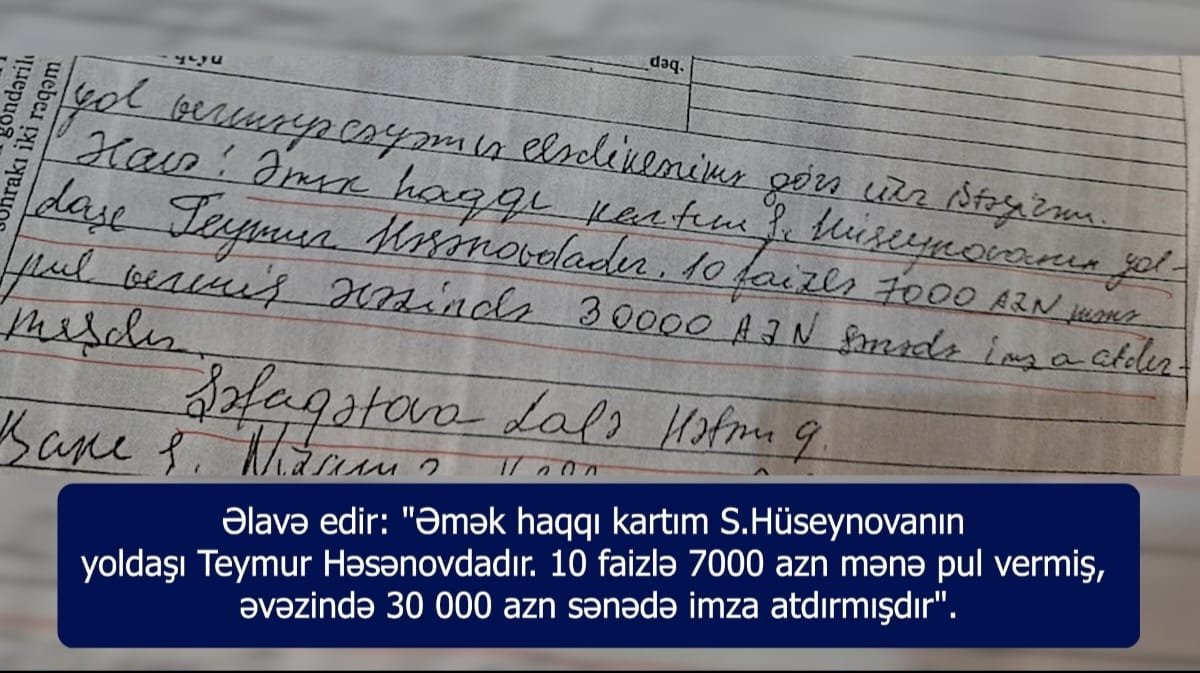 göndərilə
sonrakı iki rəqəm
dəq.
yol verməyəcəyəmin əlsdikemimə görə üzr istəyirəm.
Xaiş! Əmək haqqı kartım Ş. Hüseynovanın yol-
daşı Teymur Həsənovdadır. 10 faizlə 7000 AZN mənə
pul vermiş əvəzində 30000 AZN sənədə imza atdır-
mışdır.
Şəfaqətova Lalə Hətəm q.
Bakı ş. Nizami
Əlavə edir: "Əmək haqqı kartım S.Hüseynovanın
yoldaşı Teymur Həsənovdadır. 10 faizlə 7000 azn mənə pul vermiş,
əvəzində 30 000 azn sənədə imza atdırmışdır".